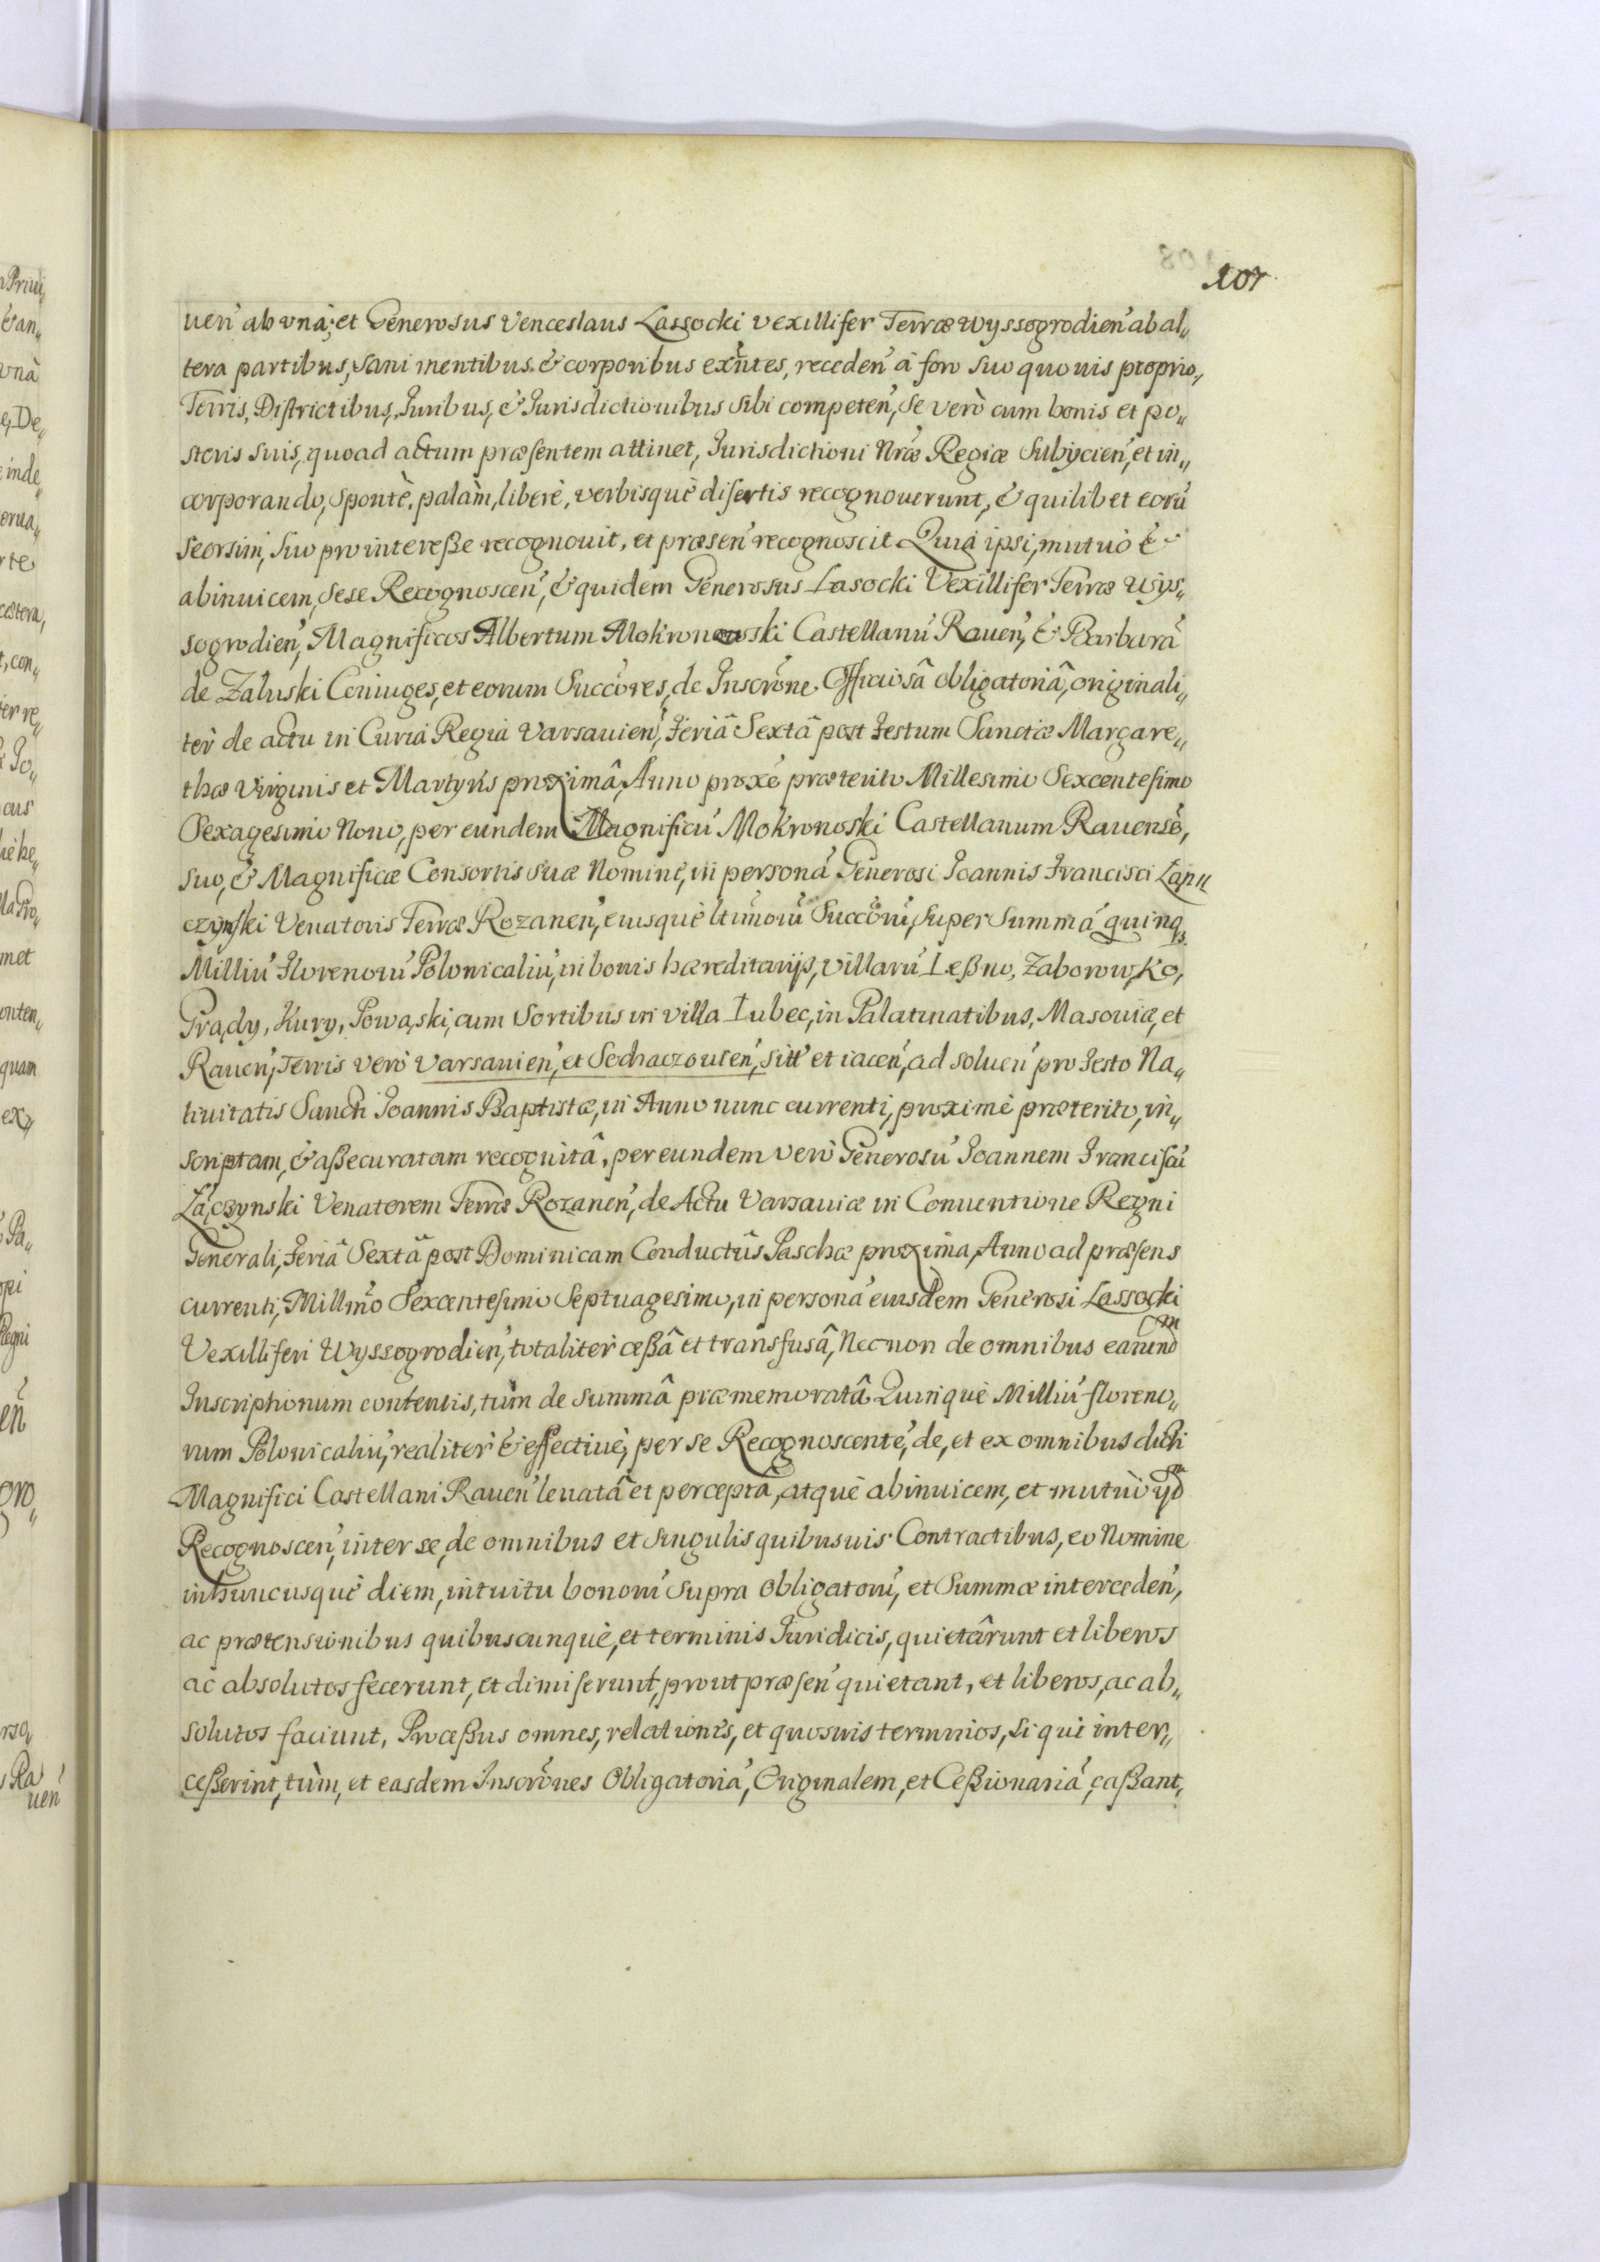 107
uen̄ ab vnà; et Generosus Venceslaus Lassocki vexillifer Terræ Wyssogrodien̄ ab al„
tera partibus, sani mentibus & corporibus exn̄tes, receden̄ à foro suo quouis proprio,
Terris, Districtibus, Juribus, & Jurisdictionibus sibi competen̄, se verò cum bonis et po„
steris suis, quoad actum præsentem attinet, Jurisdictioni Nræ Regiæ Subijcien̄, et in„
corporando, spontè, palàm, liberè, verbisquè disertis recognouerunt, & quilibet eorū
seorsim, suo pro intereße recognouit, et præsen̄ recognoscit Quià ipsi, mutuò &
abinuicem, sese Recognoscen̄, & quidem Generosus Lasocki Vexillifer Terræ Wys„
sogrodien̄, Magnificos Albertum Mokronowski Castellanū Rauen̄, & Barbarā
de Zaluski Coniuges, et eorum Succōres, de Inscrōne Officiosâ obligatoriâ, originali„
ter de actu in Curia Regia Varsauien̄, Feriâ Sextâ post Festum Sanctæ Margare„
thæ Virginis et Martyris proximâ, Anno proxè præterito Millesimo Sexcentesimo
Sexagesimo Nono, per eundem Magnificū Mokronoski Castellanum Rauensē,
suo, & Magnificæ Consortis suæ Nomine, in personā Generosi Joannis Francisci Łap„
czynski Venatoris Terræ Rozanen̄, eiusquè ltīmorū Succōrū, super Summā quinq₃
Milliū Florenorū Polonicaliū, in bonis hæreditarijs, villarū Leßno, Zaborowko,
Grądy, Kury, Powąski, cum Sortibus in villa Lubec, in Palatinatibus, Masouiæ, et
Rauen̄, Terris verò Varsauien̄, et Sochaczouien̄, sitt̄ et iacen̄, ad soluen̄ pro Festo Na„
tiuitatis Sancti Joannis Baptistæ, in Anno nunc currenti, proximè præterito, in„
scriptam, & aßecuratam recognitâ, per eundem verò Generosū Joannem Franciscū
Łączynski Venatorem Terræ Rozanen̄, de Actu Varsauiæ in Conuentione Regni
Generali, Feriâ Sextâ post Dominicam Conductūs Paschæ proxima, Anno ad præsens
currenti, Millmō Sexcentesimo Septuagesimo, in personā eiusdem Generosi Lassocki
Vexilliferi Wyssogrodien̄, totaliter ceßâ et transfusâ, Nec non de omnibus earundm
Inscriptionum contentis, tùm de summâ præmemoratâ Quinquè Milliū floreno„
rum Polonicaliū, realiter & effectiuè, per se Recognoscentē, de, et ex omnibus dicti
Magnifici Castellani Rauen̄ leuatâ et perceptâ, atquè abinuicem, et mutuò ijdm
Recognoscen̄, inter se, de omnibus et singulis quibusuis Contractibus, eo Nomine
in huncusquè diem, intuitu bonorū supra obligatorū, et Summæ interceden̄,
ac prætensionibus quibuscunquè, et terminis Juridicis, quietârunt et liberos
ac absolutos fecerunt, et dimiserunt, prout præsen̄ quietant, et liberos, ac ab„
solutos faciunt, Proceßus omnes, relationes, et quosuis terminos, si qui inter„
ceßerint, tùm, et easdem Inscrōnes Obligatoriā, Originalem, et Ceßionariā, caßant,